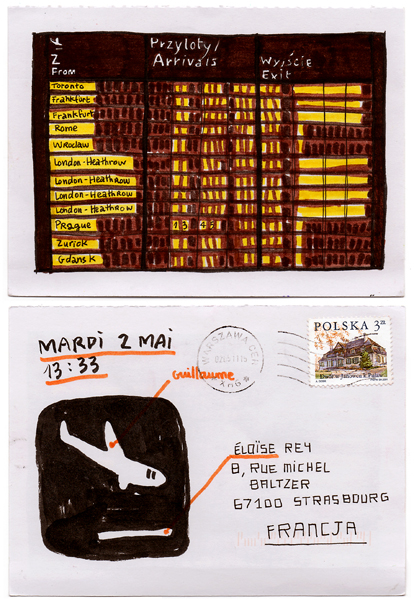 Z
From
Przyloty/
Arrivals
Wyjście
Exit
Toronto
Frankfurt
Frankfurt
Rome
Wroclaw
London-Heathrow
London-Heathrow
London-Heathrow
London-Heathrow
Prague 13 45
Zurich
Gdansk
MARDI 2 MAI
13:33
Guillaume
WARSZAWA
POLSKA 3
ÉLOÏSE REY
8, RUE MICHEL
BALTZER
67100 STRASBOURG
FRANCJA